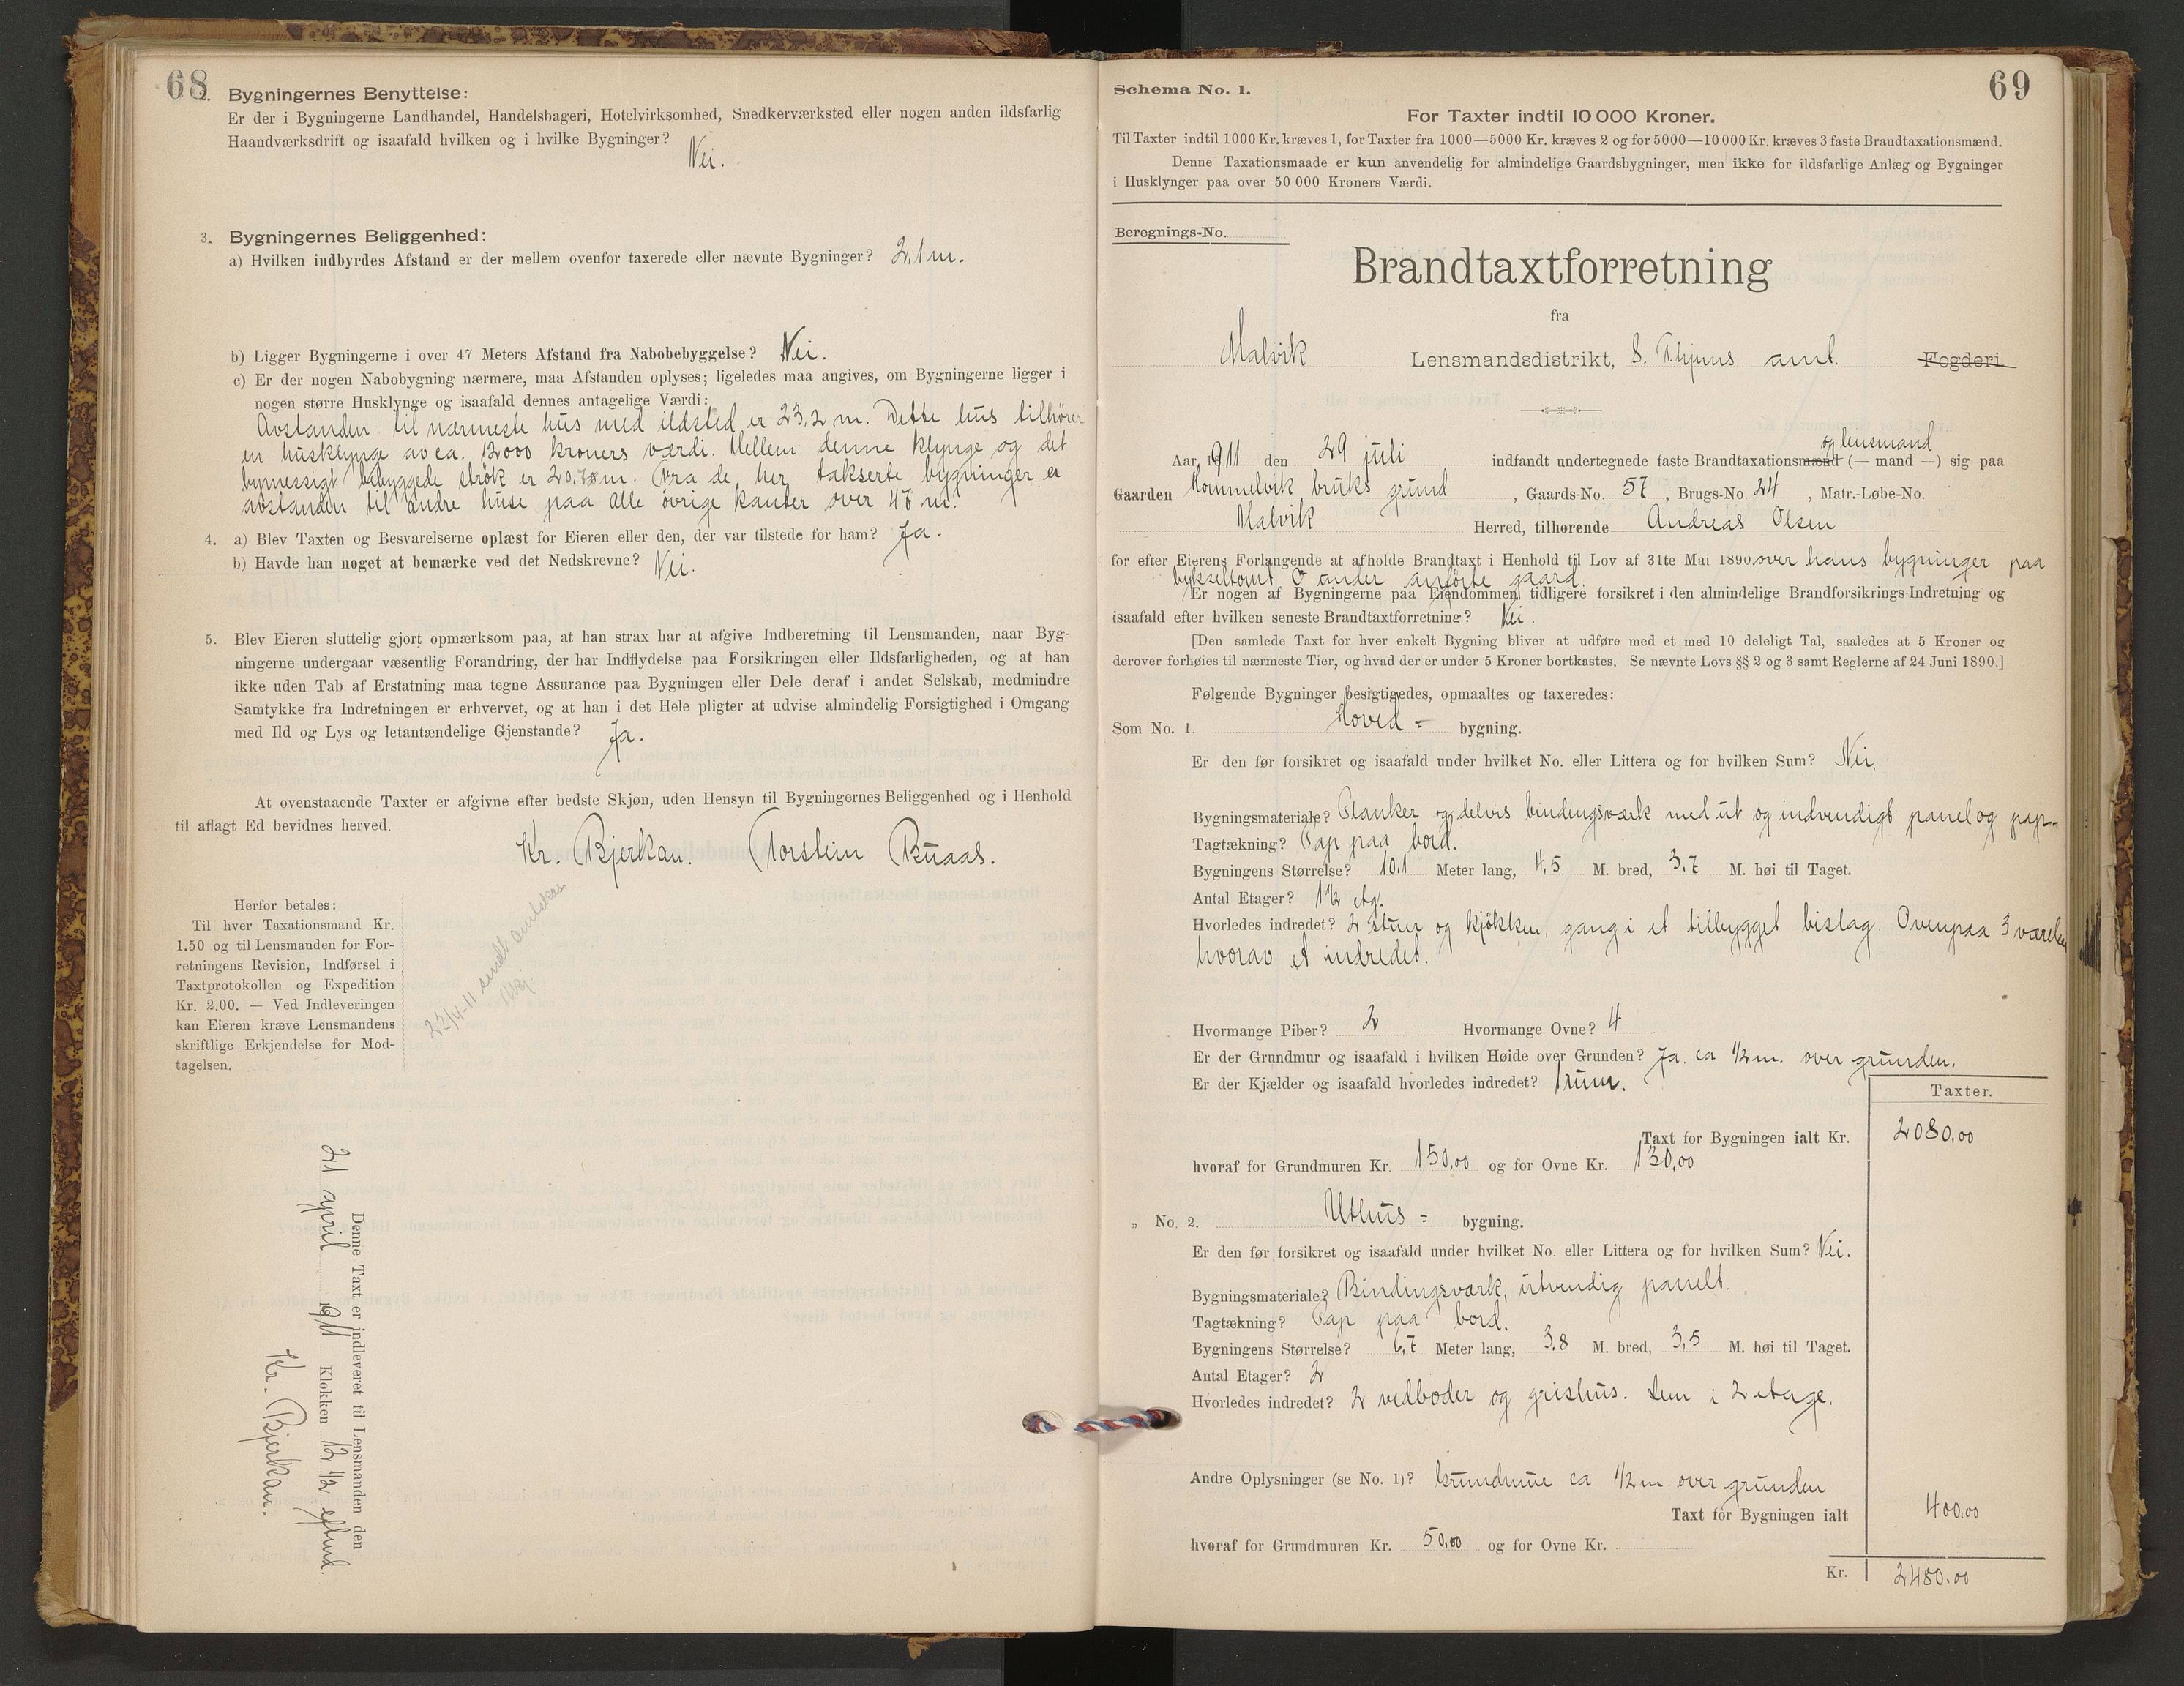 68
2. Bygningernes Benyttelse:
Er der i Bygningerne Landhandel, Handelsbageri, Hotelvirksomhed, Snedkerværksted eller nogen anden ildsfarlig
Haandværksdrift og isaafald hvilken og i hvilke Bygninger? Nei.
3. Bygningernes Beliggenhed:
a) Hvilken indbyrdes Afstand er der mellem ovenfor taxerede eller nævnte Bygninger? 2,1 m.
b) Ligger Bygningerne i over 47 Meters Afstand fra Nabobebyggelse? Nei.
c) Er der nogen Nabobygning nærmere, maa Afstanden oplyses; ligeledes maa angives, om Bygningerne ligger i
nogen større Husklynge og isaafald dennes antagelige Værdi:
Avstanden til nærmeste hus med ildsted er 23,2 m. Dette hus tilhører
en husklynge av ca. 12000 kroners værdi. Mellem denne klynge og det
bymessigt bebyggede strök er 20,70 m. Fra de her takserte bygninger er
avstanden til andre huse paa alle övrige kanter over 47 m.
4. a) Blev Taxten og Besvarelserne oplæst for Eieren eller den, der var tilstede for ham? Ja.
b) Havde han noget at bemærke ved det Nedskrevne? Nei.
5. Blev Eieren sluttelig gjort opmærksom paa, at han strax har at afgive Indberetning til Lensmanden, naar Byg-
ningerne undergaar væsentlig Forandring, der har Indflydelse paa Forsikringen eller Ildsfarligheden, og at han
ikke uden Tab af Erstatning maa tegne Assurance paa Bygningen eller Dele deraf i andet Selskab, medmindre
Samtykke fra Indretningen er erhvervet, og at han i det Hele pligter at udvise almindelig Forsigtighed i Omgang
med Ild og Lys og letantændelige Gjenstande? Ja.
At ovenstaaende Taxter er afgivne efter bedste Skjøn, uden Hensyn til Bygningernes Beliggenhed og i Henhold
til aflagt Ed bevidnes herved.
Kr. Bjerkan. Torstein Buaas.
Herfor betales:
Til hver Taxationsmand Kr.
1.50 og til Lensmanden for For-
retningens Revision, Indførsel i
Taxtprotokollen og Expedition
Kr. 2.00. — Ved Indleveringen
kan Eieren kræve Lensmandens
skriftlige Erkjendelse for Mod-
tagelsen.
22/4-11 sendt
Denne Taxt er indleveret til Lensmanden den
21 april 1911 Klokken 12 1/2 eftmd.
Kr. Bjerkan.
69
Schema No. 1.
For Taxter indtil 10 000 Kroner.
Til Taxter indtil 1000 Kr. kræves 1, for Taxter fra 1000—5000 Kr. kræves 2 og for 5000—10 000 Kr. kræves 3 faste Brandtaxationsmænd.
Denne Taxationsmaade er kun anvendelig for almindelige Gaardsbygninger, men ikke for ildsfarlige Anlæg og Bygninger
i Husklynger paa over 50 000 Kroners Værdi.
Beregnings-No.
Brandtaxtforretning
fra
Malvik Lensmandsdistrikt, S. Thjems amt. Fogderi
og lensmand
Aar 1911 den 29 juli indfandt undertegnede faste Brandtaxationsmænd (— mand —) sig paa
Gaarden Hommelvik bruks grund, Gaards-No. 57, Brugs-No. 24, Matr.-Løbe-No.
Malvik Herred, tilhørende Andreas Olsen
for efter Eierens Forlangende at afholde Brandtaxt i Henhold til Lov af 31te Mai 1890 over hans bygninger paa
bykseltomt O under anförte gaard.
Er nogen af Bygningerne paa Eiendommen tidligere forsikret i den almindelige Brandforsikrings-Indretning og
isaafald efter hvilken seneste Brandtaxtforretning? Nei.
[Den samlede Taxt for hver enkelt Bygning bliver at udføre med et med 10 deleligt Tal, saaledes at 5 Kroner og
derover forhøies til nærmeste Tier, og hvad der er under 5 Kroner bortkastes. Se nævnte Lovs §§ 2 og 3 samt Reglerne af 24 Juni 1890.]
Følgende Bygninger besigtigedes, opmaaltes og taxeredes:
Som No. 1. Hoved = bygning.
Er den før forsikret og isaafald under hvilket No. eller Littera og for hvilken Sum? Nei.
Bygningsmateriale? Planker og delvis bindingsværk med ut og indvendigt panel og pap.
Tagtækning? Pap paa bord.
Bygningens Størrelse? 10,1 Meter lang, 4,5 M. bred, 3,7 M. høi til Taget.
Antal Etager? 1 1/2 etg.
Hvorledes indredet? 2 stuer og kjökken, gang i et tilbygget bislag. Ovenpaa 3 værelser
hvorav et indredet.
Hvormange Piber? 2 Hvormange Ovne? 4
Er der Grundmur og isaafald i hvilken Høide over Grunden? Ja. ca 1/2 m. over grunden.
Er der Kjælder og isaafald hvorledes indredet? 1 rum.
Taxter.
Taxt for Bygningen ialt Kr. 2080,00
hvoraf for Grundmuren Kr. 150,00 og for Ovne Kr. 130,00
„ No. 2. Uthus = bygning.
Er den før forsikret og isaafald under hvilket No. eller Littera og for hvilken Sum? Nei.
Bygningsmateriale? Bindingsværk, utvendig panelt.
Tagtækning? Pap paa bord.
Bygningens Størrelse? 6,7 Meter lang, 3,8 M. bred, 3,5 M. høi til Taget.
Antal Etager? 2
Hvorledes indredet? 2 vedboder og grishus. Lem i 2 etage.
Andre Oplysninger (se No. 1)? Grundmur ca 1/2 m. over grunden
Taxt for Bygningen ialt 400,00
hvoraf for Grundmuren Kr. 50,00 og for Ovne Kr.
Kr. 2480,00